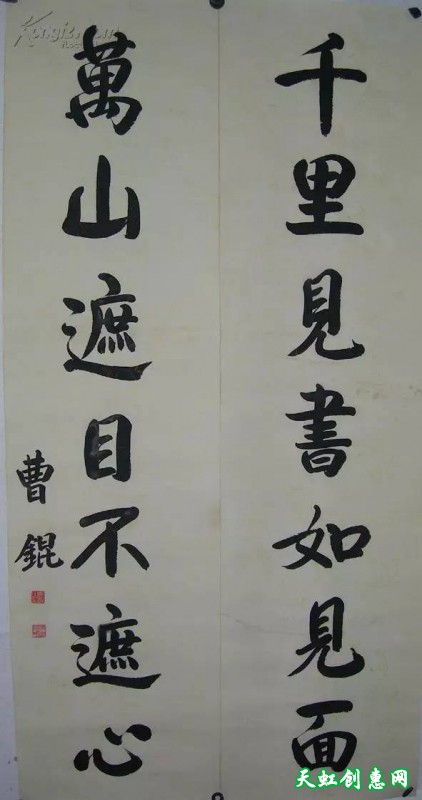 千里見書如見面
萬山遮目不遮心
曹錕
天虹创惠网